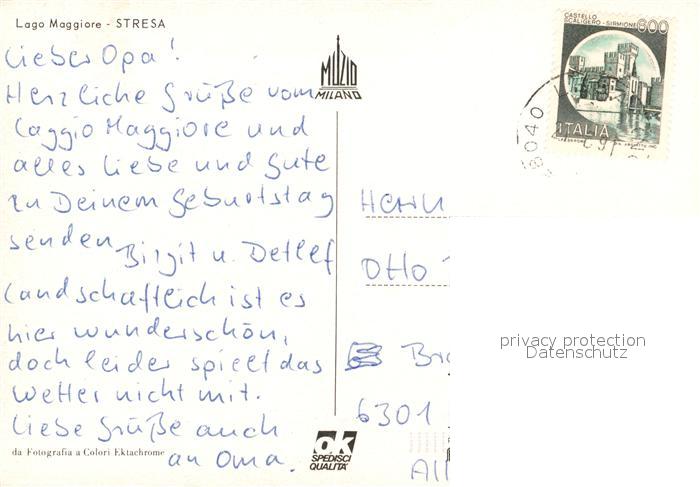 Lago Maggiore - STRESA
Lieber Opa!
Herzliche Grüße vom
Laggio Maggiore und
alles Liebe und Gute
zu Deinem Geburtstag
senden Birgit u. Detlef
Landschaftlich ist es
hier wunderschön,
doch leider spielt das
Wetter nicht mit.
Liebe Grüße auch
an Oma.
da Fotografia a Colori Ektachrome
MUZIO
MILANO
CASTELLO
SCALIGERO - SIRMIONE
600
ITALIA
Herrn
Otto
6301
ok
SPEDISCI
QUALITÀ
privacy protection
Datenschutz